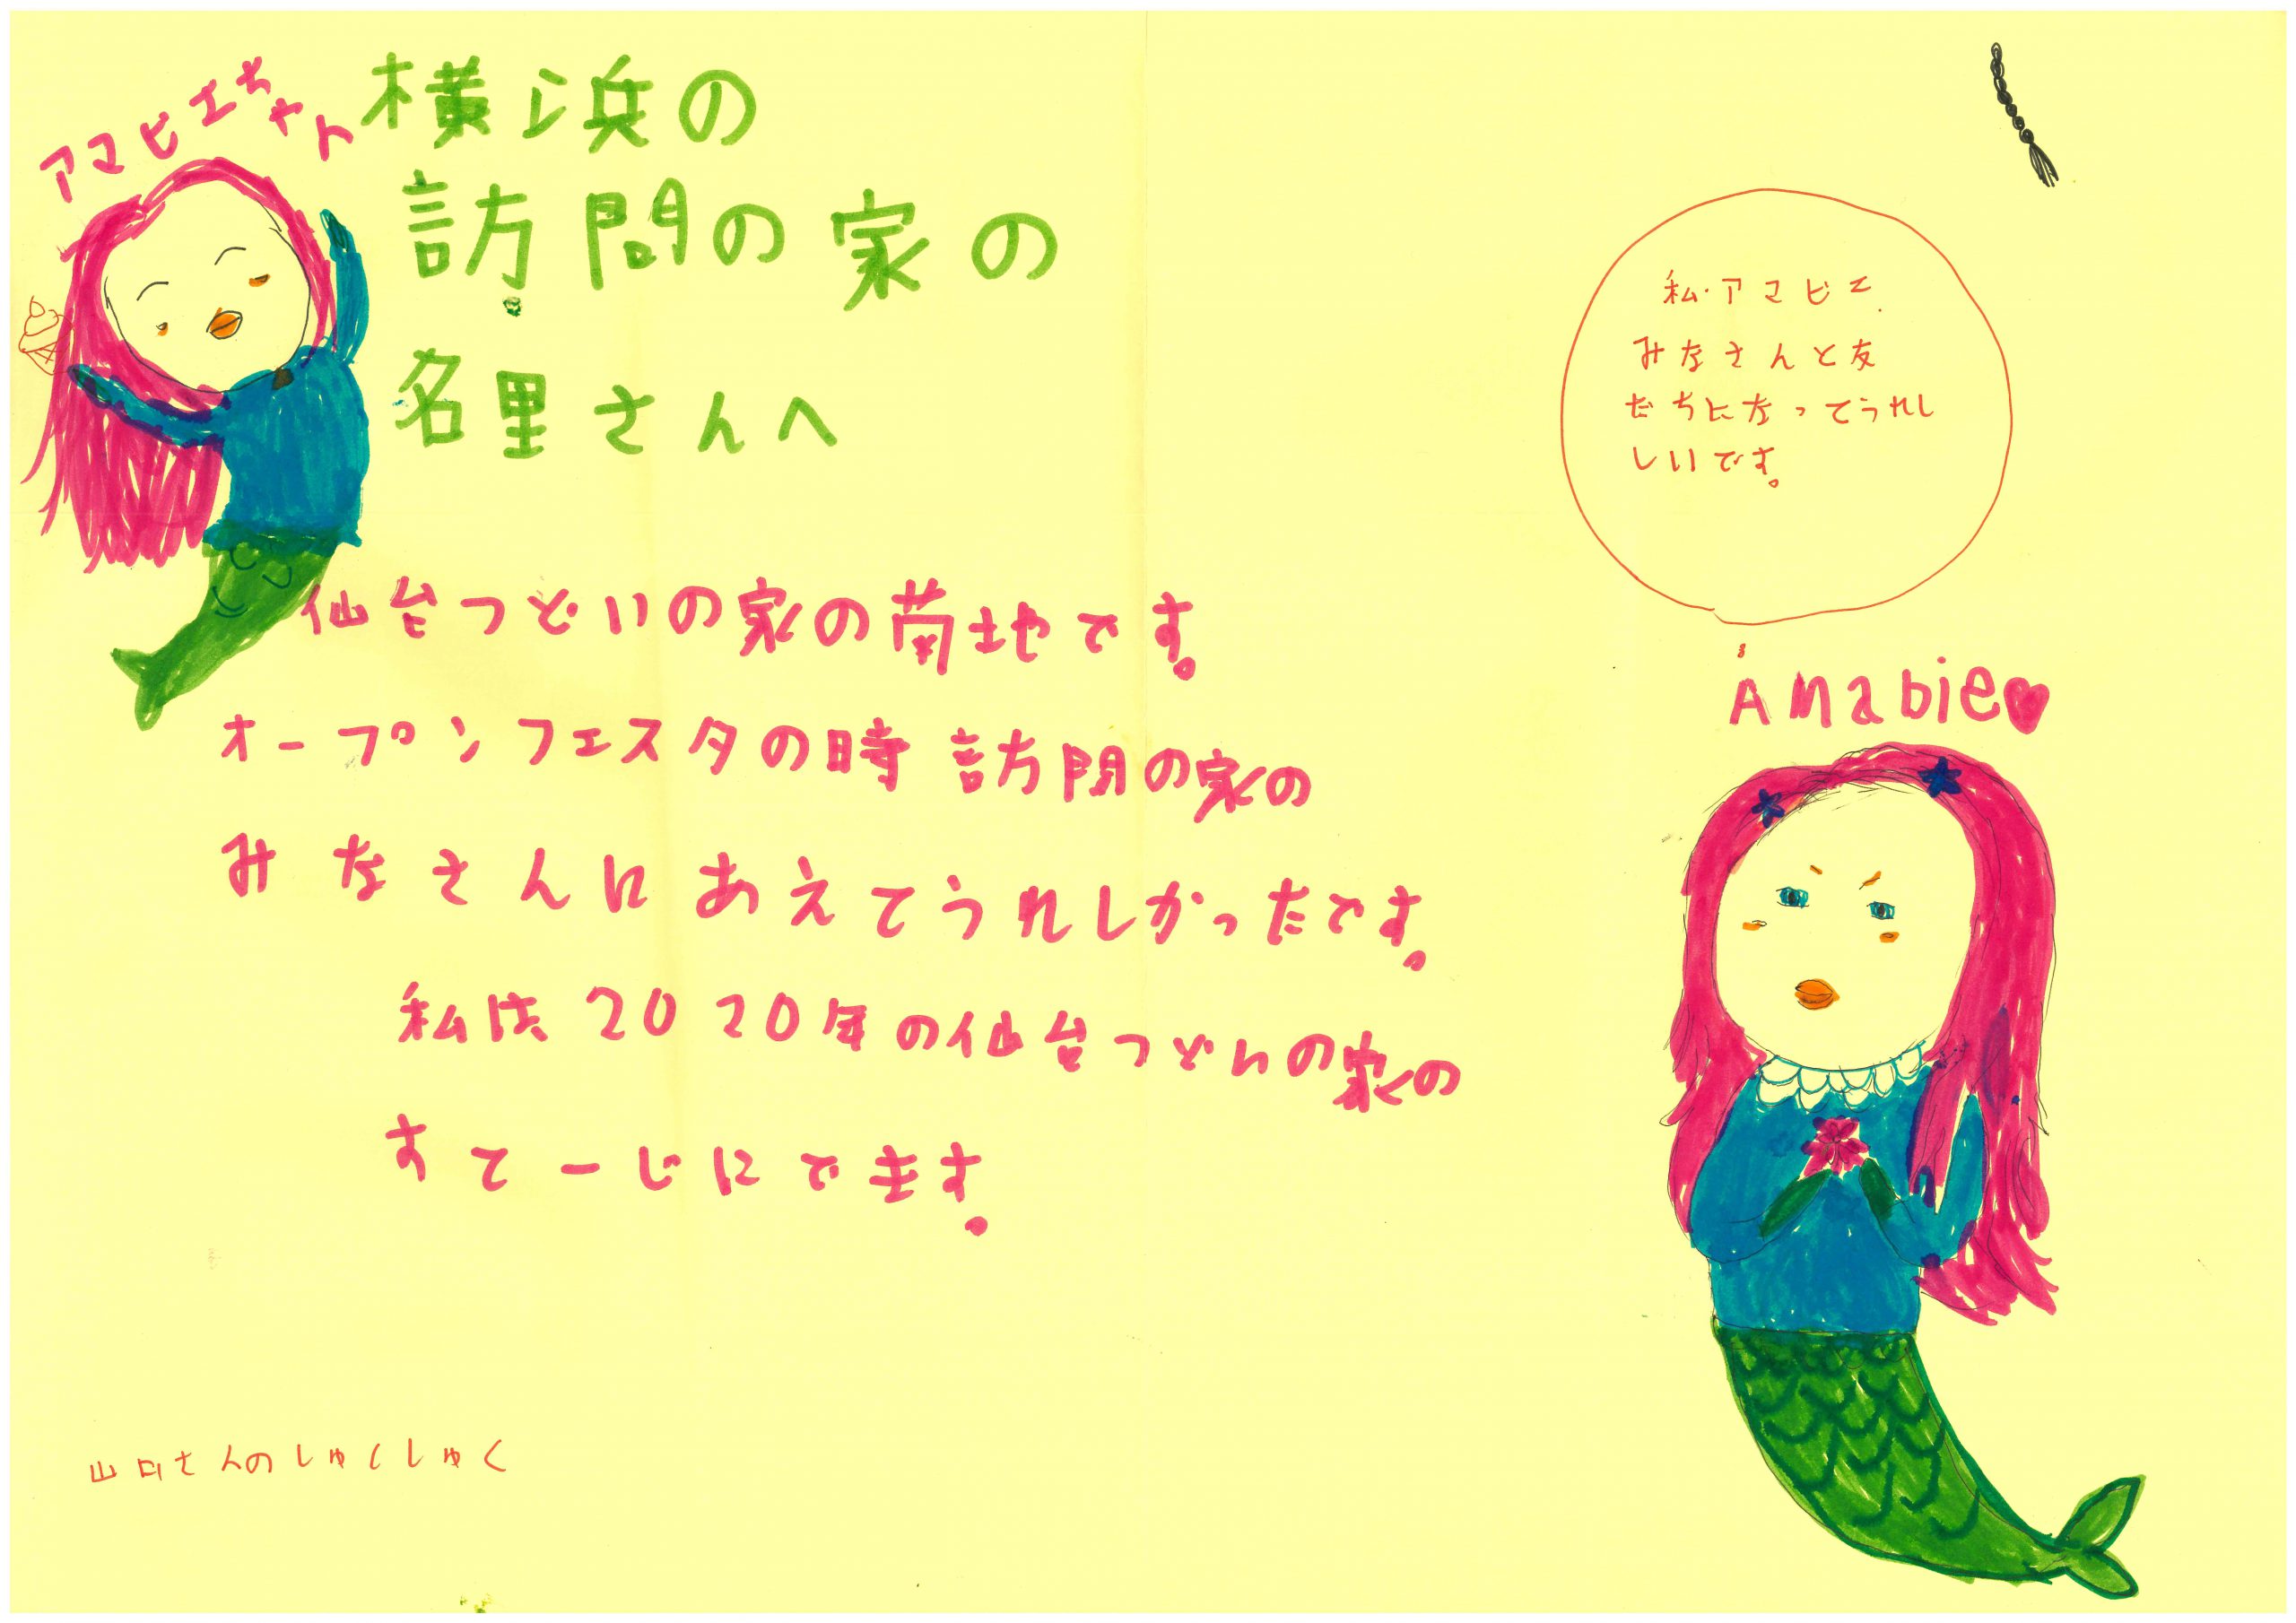 アマビエちゃん
横浜の
訪問の家の
名里さんへ
仙台つどいの家の菊地です。
オープンフェスタの時 訪問の家の
みなさんにあえてうれしかったです。
私は2020年の仙台つどいの家の
すてーじにでます。
山口さんのしゅくしゅく
私・アマビエ
みなさんと友
だちになってうれし
しいです。
Amabie♥